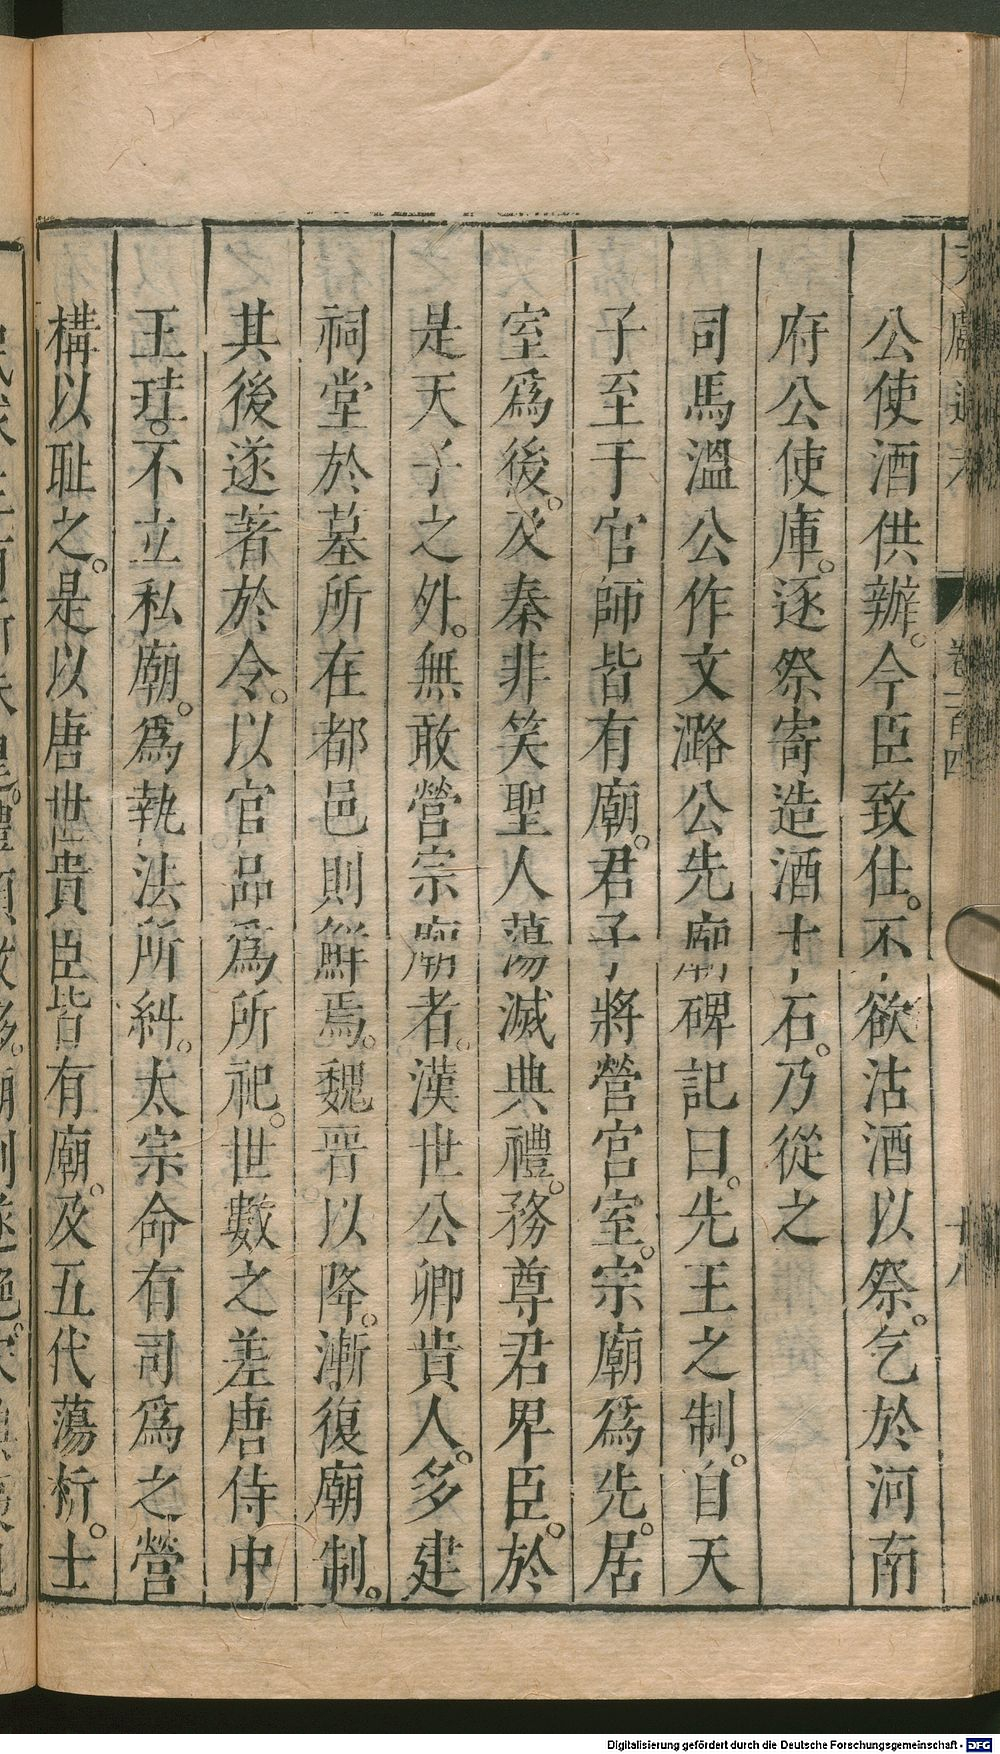 卷一百四
十八
公使酒供辦。今臣致仕。不欲沽酒以祭。乞於河南
府公使庫。逐祭寄造酒十石。乃從之
司馬溫公作文潞公先廟碑記曰。先王之制。自天
子至于官師皆有廟。君子將營宮室。宗廟爲先。居
室爲後。及秦非笑聖人蕩滅典禮。務尊君卑臣。於
是天子之外。無敢營宗廟者。漢世公卿貴人。多建
祠堂於墓所在都邑則鮮焉。魏晉以降。漸復廟制。
其後遂著於令。以官品爲所祀。世數之差唐侍中
王珪。不立私廟。爲執法所糾。太宗命有司爲之營
構以耻之。是以唐世貴臣皆有廟。及五代蕩析。士
Digitalisierung gefördert durch die Deutsche Forschungsgemeinschaft - DFG